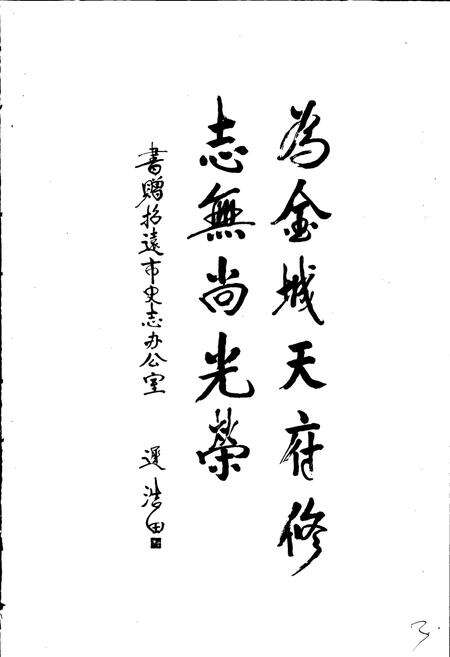 為金城天府修
志無尚光榮
書贈招遠市史志办公室
遲浩田
3